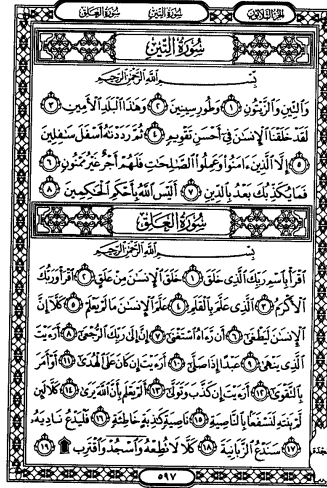 الجزء الثلاثون سورة التين سورة العلق
سُورَةُ التِّينِ
بِسْمِ اللَّهِ الرَّحْمَٰنِ الرَّحِيمِ
وَالتِّينِ وَالزَّيْتُونِ ١ وَطُورِ سِينِينَ ٢ وَهَٰذَا الْبَلَدِ الْأَمِينِ ٣
لَقَدْ خَلَقْنَا الْإِنسَانَ فِي أَحْسَنِ تَقْوِيمٍ ٤ ثُمَّ رَدَدْنَاهُ أَسْفَلَ سَافِلِينَ
٥ إِلَّا الَّذِينَ آمَنُوا وَعَمِلُوا الصَّالِحَاتِ فَلَهُمْ أَجْرٌ غَيْرُ مَمْنُونٍ ٦
فَمَا يُكَذِّبُكَ بَعْدُ بِالدِّينِ ٧ أَلَيْسَ اللَّهُ بِأَحْكَمِ الْحَاكِمِينَ ٨
سُورَةُ الْعَلَقِ
بِسْمِ اللَّهِ الرَّحْمَٰنِ الرَّحِيمِ
اقْرَأْ بِاسْمِ رَبِّكَ الَّذِي خَلَقَ ١ خَلَقَ الْإِنسَانَ مِنْ عَلَقٍ ٢ اقْرَأْ وَرَبُّكَ
الْأَكْرَمُ ٣ الَّذِي عَلَّمَ بِالْقَلَمِ ٤ عَلَّمَ الْإِنسَانَ مَا لَمْ يَعْلَمْ ٥ كَلَّا إِنَّ
الْإِنسَانَ لَيَطْغَىٰ ٦ أَن رَّآهُ اسْتَغْنَىٰ ٧ إِنَّ إِلَىٰ رَبِّكَ الرُّجْعَىٰ ٨ أَرَأَيْتَ
الَّذِي يَنْهَىٰ ٩ عَبْدًا إِذَا صَلَّىٰ ١٠ أَرَأَيْتَ إِن كَانَ عَلَى الْهُدَىٰ ١١ أَوْ أَمَرَ
بِالتَّقْوَىٰ ١٢ أَرَأَيْتَ إِن كَذَّبَ وَتَوَلَّىٰ ١٣ أَلَمْ يَعْلَم بِأَنَّ اللَّهَ يَرَىٰ ١٤ كَلَّا لَئِن
لَّمْ يَنتَهِ لَنَسْفَعًا بِالنَّاصِيَةِ ١٥ نَاصِيَةٍ كَاذِبَةٍ خَاطِئَةٍ ١٦ فَلْيَدْعُ نَادِيَهُ
١٧ سَنَدْعُ الزَّبَانِيَةَ ١٨ كَلَّا لَا تُطِعْهُ وَاسْجُدْ وَاقْتَرِب ۩ ١٩
٥٩٧